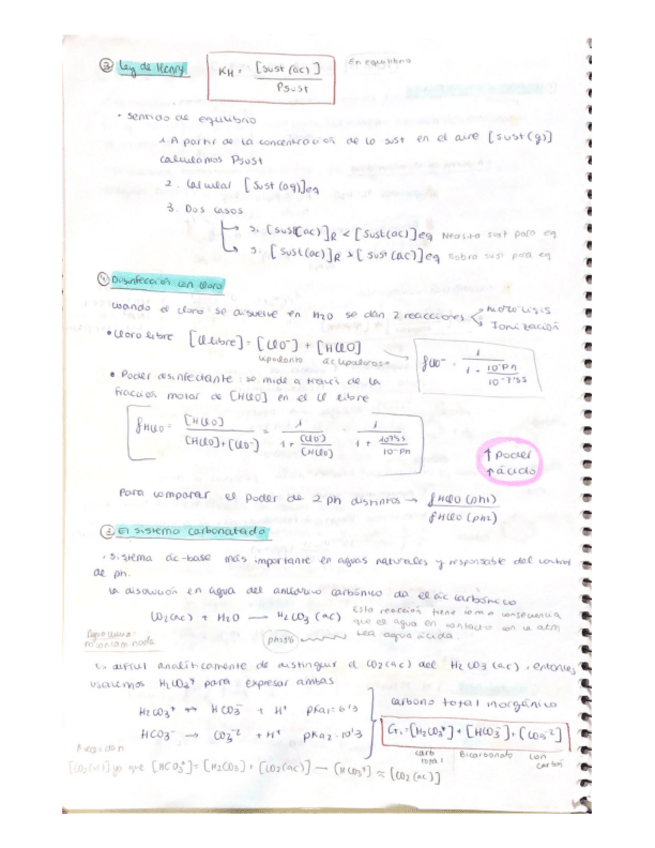 ② Ley de Henry KH = [sust (ac)] / Psust En equilibrio
• sentido de equilibrio
1. A partir de la concentración de la sust en el aire [sust(g)]
calculamos Psust
2. Calcular [sust (aq)]eq
3. Dos casos
→ si [sust(ac)]R < [sust(ac)]eq sust para eq
→ si [sust(ac)]R > [sust(ac)]eq sobra sust para eq
④ Desinfección con cloro
cuando el cloro se disuelve en H2O se dan 2 reacciones < Hidrólisis
Ionización
• Cloro libre [Cl libre] = [ClO⁻] + [HClO]
hipoclorito ác hipocloroso
fClO⁻ = 1 / (1 + 10^-pH / 10^-7'55)
• Poder desinfectante: se mide a través de la
fracción molar de [HClO] en el Cl libre
fHClO = [HClO] / ([HClO]+[ClO⁻]) = 1 / (1 + [ClO⁻]/[HClO]) = 1 / (1 + 10^-7'55 / 10^-pH)
↑ Poder
↑ ácido
Para comparar el poder de 2 ph distintos → fHClO (pH1) / fHClO (pH2)
③ El sistema carbonatado
• Sistema ác-base más importante en aguas naturales y responsable del control
de ph.
La disolución en agua del anhídrido carbónico da el ác carbónico
CO2(ac) + H2O → H2CO3 (ac) Esta reacción tiene como consecuencia
que el agua en contacto con la atm
sea agua ácida
Es difícil analíticamente de distinguir el CO2(ac) del H2CO3 (ac), entonces
usaremos H2CO3* para expresar ambas
H2CO3* ↔ HCO3⁻ + H⁺ pKa1 = 6'3
HCO3⁻ → CO3⁻² + H⁺ pKa2 = 10'3
carbono total inorgánico
CT = [H2CO3*] + [HCO3⁻] + [CO3⁻²]
Bicarbonato
[CO2(ac)] ya que [HCO3*] = [H2CO3] + [CO2(ac)] → [HCO3*] ≈ [CO2(ac)]